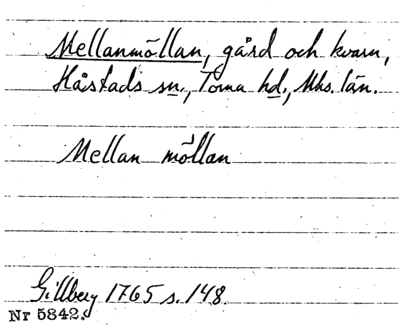 Mellanmöllan, gård och kvarn,
Håstads sn., Torna hd., Mhs. län.
Mellan möllan
Gillberg 1765 s. 148.
Nr 5842.